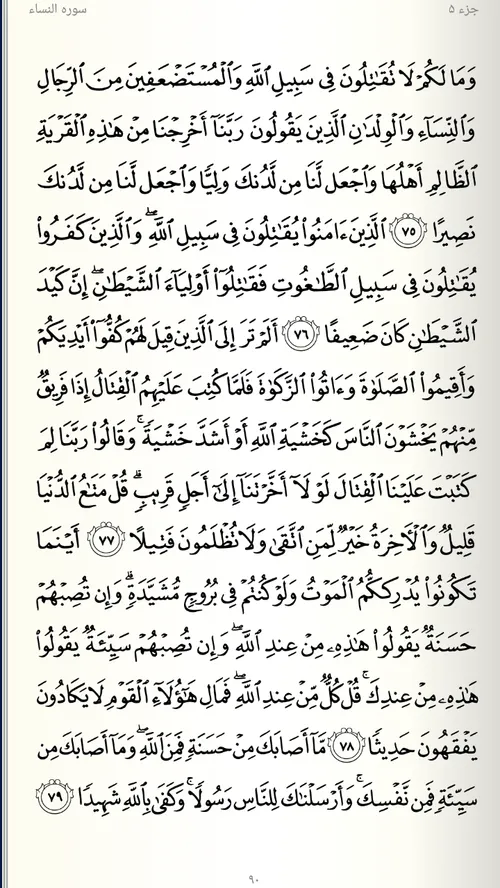 جزء ۵
سوره النساء
وَمَا لَكُمۡ لَا تُقَٰتِلُونَ فِي سَبِيلِ ٱللَّهِ وَٱلۡمُسۡتَضۡعَفِينَ مِنَ ٱلرِّجَالِ
وَٱلنِّسَآءِ وَٱلۡوِلۡدَٰنِ ٱلَّذِينَ يَقُولُونَ رَبَّنَآ أَخۡرِجۡنَا مِنۡ هَٰذِهِ ٱلۡقَرۡيَةِ
ٱلظَّالِمِ أَهۡلُهَا وَٱجۡعَل لَّنَا مِن لَّدُنكَ وَلِيّٗا وَٱجۡعَل لَّنَا مِن لَّدُنكَ
نَصِيرًا ٧٥ ٱلَّذِينَ ءَامَنُواْ يُقَٰتِلُونَ فِي سَبِيلِ ٱللَّهِۖ وَٱلَّذِينَ كَفَرُواْ
يُقَٰتِلُونَ فِي سَبِيلِ ٱلطَّٰغُوتِ فَقَٰتِلُوٓاْ أَوۡلِيَآءَ ٱلشَّيۡطَٰنِۖ إِنَّ كَيۡدَ
ٱلشَّيۡطَٰنِ كَانَ ضَعِيفًا ٧٦ أَلَمۡ تَرَ إِلَى ٱلَّذِينَ قِيلَ لَهُمۡ كُفُّوٓاْ أَيۡدِيَكُمۡ
وَأَقِيمُواْ ٱلصَّلَوٰةَ وَءَاتُواْ ٱلزَّكَوٰةَ فَلَمَّا كُتِبَ عَلَيۡهِمُ ٱلۡقِتَالُ إِذَا فَرِيقٞ
مِّنۡهُمۡ يَخۡشَوۡنَ ٱلنَّاسَ كَخَشۡيَةِ ٱللَّهِ أَوۡ أَشَدَّ خَشۡيَةٗۚ وَقَالُواْ رَبَّنَا لِمَ
كَتَبۡتَ عَلَيۡنَا ٱلۡقِتَالَ لَوۡلَآ أَخَّرۡتَنَآ إِلَىٰٓ أَجَلٖ قَرِيبٖۗ قُلۡ مَتَٰعُ ٱلدُّنۡيَا
قَلِيلٞ وَٱلۡأٓخِرَةُ خَيۡرٞ لِّمَنِ ٱتَّقَىٰ وَلَا تُظۡلَمُونَ فَتِيلًا ٧٧ أَيۡنَمَا
تَكُونُواْ يُدۡرِككُّمُ ٱلۡمَوۡتُ وَلَوۡ كُنتُمۡ فِي بُرُوجٖ مُّشَيَّدَةٖۗ وَإِن تُصِبۡهُمۡ
حَسَنَةٞ يَقُولُواْ هَٰذِهِۦ مِنۡ عِندِ ٱللَّهِۖ وَإِن تُصِبۡهُمۡ سَيِّئَةٞ يَقُولُواْ
هَٰذِهِۦ مِنۡ عِندِكَۚ قُلۡ كُلّٞ مِّنۡ عِندِ ٱللَّهِۖ فَمَالِ هَٰٓؤُلَآءِ ٱلۡقَوۡمِ لَا يَكَادُونَ
يَفۡقَهُونَ حَدِيثٗا ٧٨ مَّآ أَصَابَكَ مِنۡ حَسَنَةٖ فَمِنَ ٱللَّهِۖ وَمَآ أَصَابَكَ مِن
سَيِّئَةٖ فَمِن نَّفۡسِكَۚ وَأَرۡسَلۡنَٰكَ لِلنَّاسِ رَسُولٗاۚ وَكَفَىٰ بِٱللَّهِ شَهِيدٗا ٧٩
۹۰